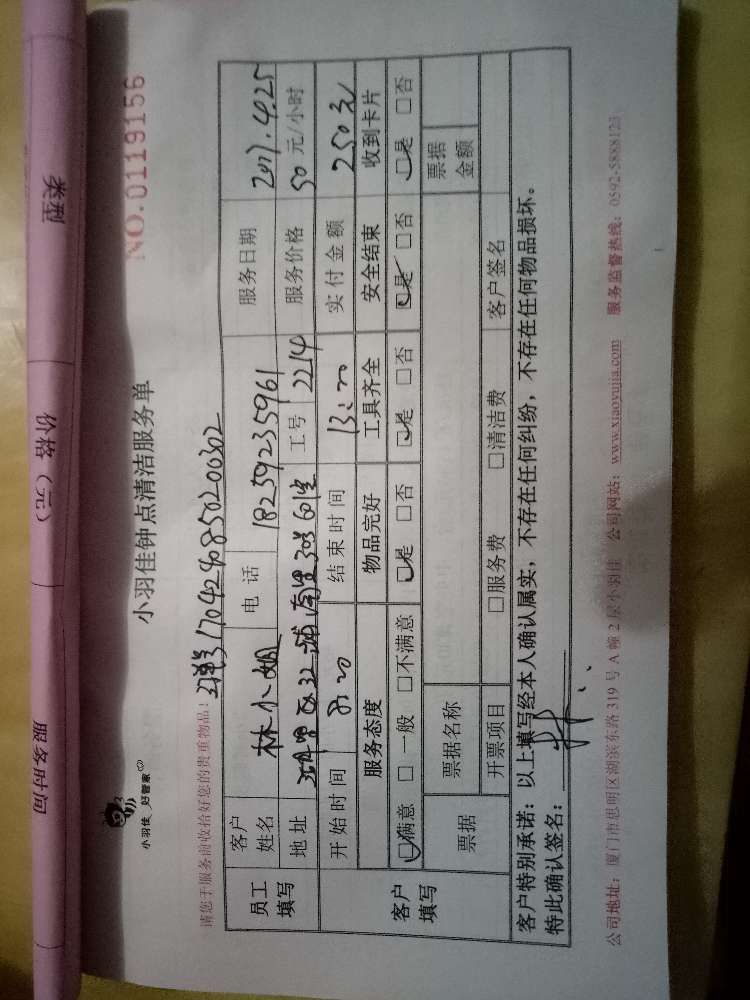 类型
价格（元）
服务时间
小羽佳 好管家
小羽佳钟点清洁服务单
NO.0119156
请您于服务前收拾好您的贵重物品！
员工填写
客户姓名 林小姐 电话 18259235961 服务日期 2017.4.25
地址 工号 2214 服务价格 50 元/小时
客户填写
开始时间 8:20 结束时间 13:20 实付金额 250元
服务态度 物品完好 工具齐全 安全结束 收到卡片
□满意 □一般 □不满意 □是 □否 □是 □否 □是 □否 □是 □否
票据 票据名称 票据金额
开票项目 □服务费 □清洁费 客户签名
客户特别承诺：以上填写经本人确认属实，不存在任何纠纷，不存在任何物品损坏。
特此确认签名：
公司地址：厦门市思明区湖滨东路319号A幢2层小羽佳 公司网站：www.xiaoyujia.com 服务监督热线：0592-5888123